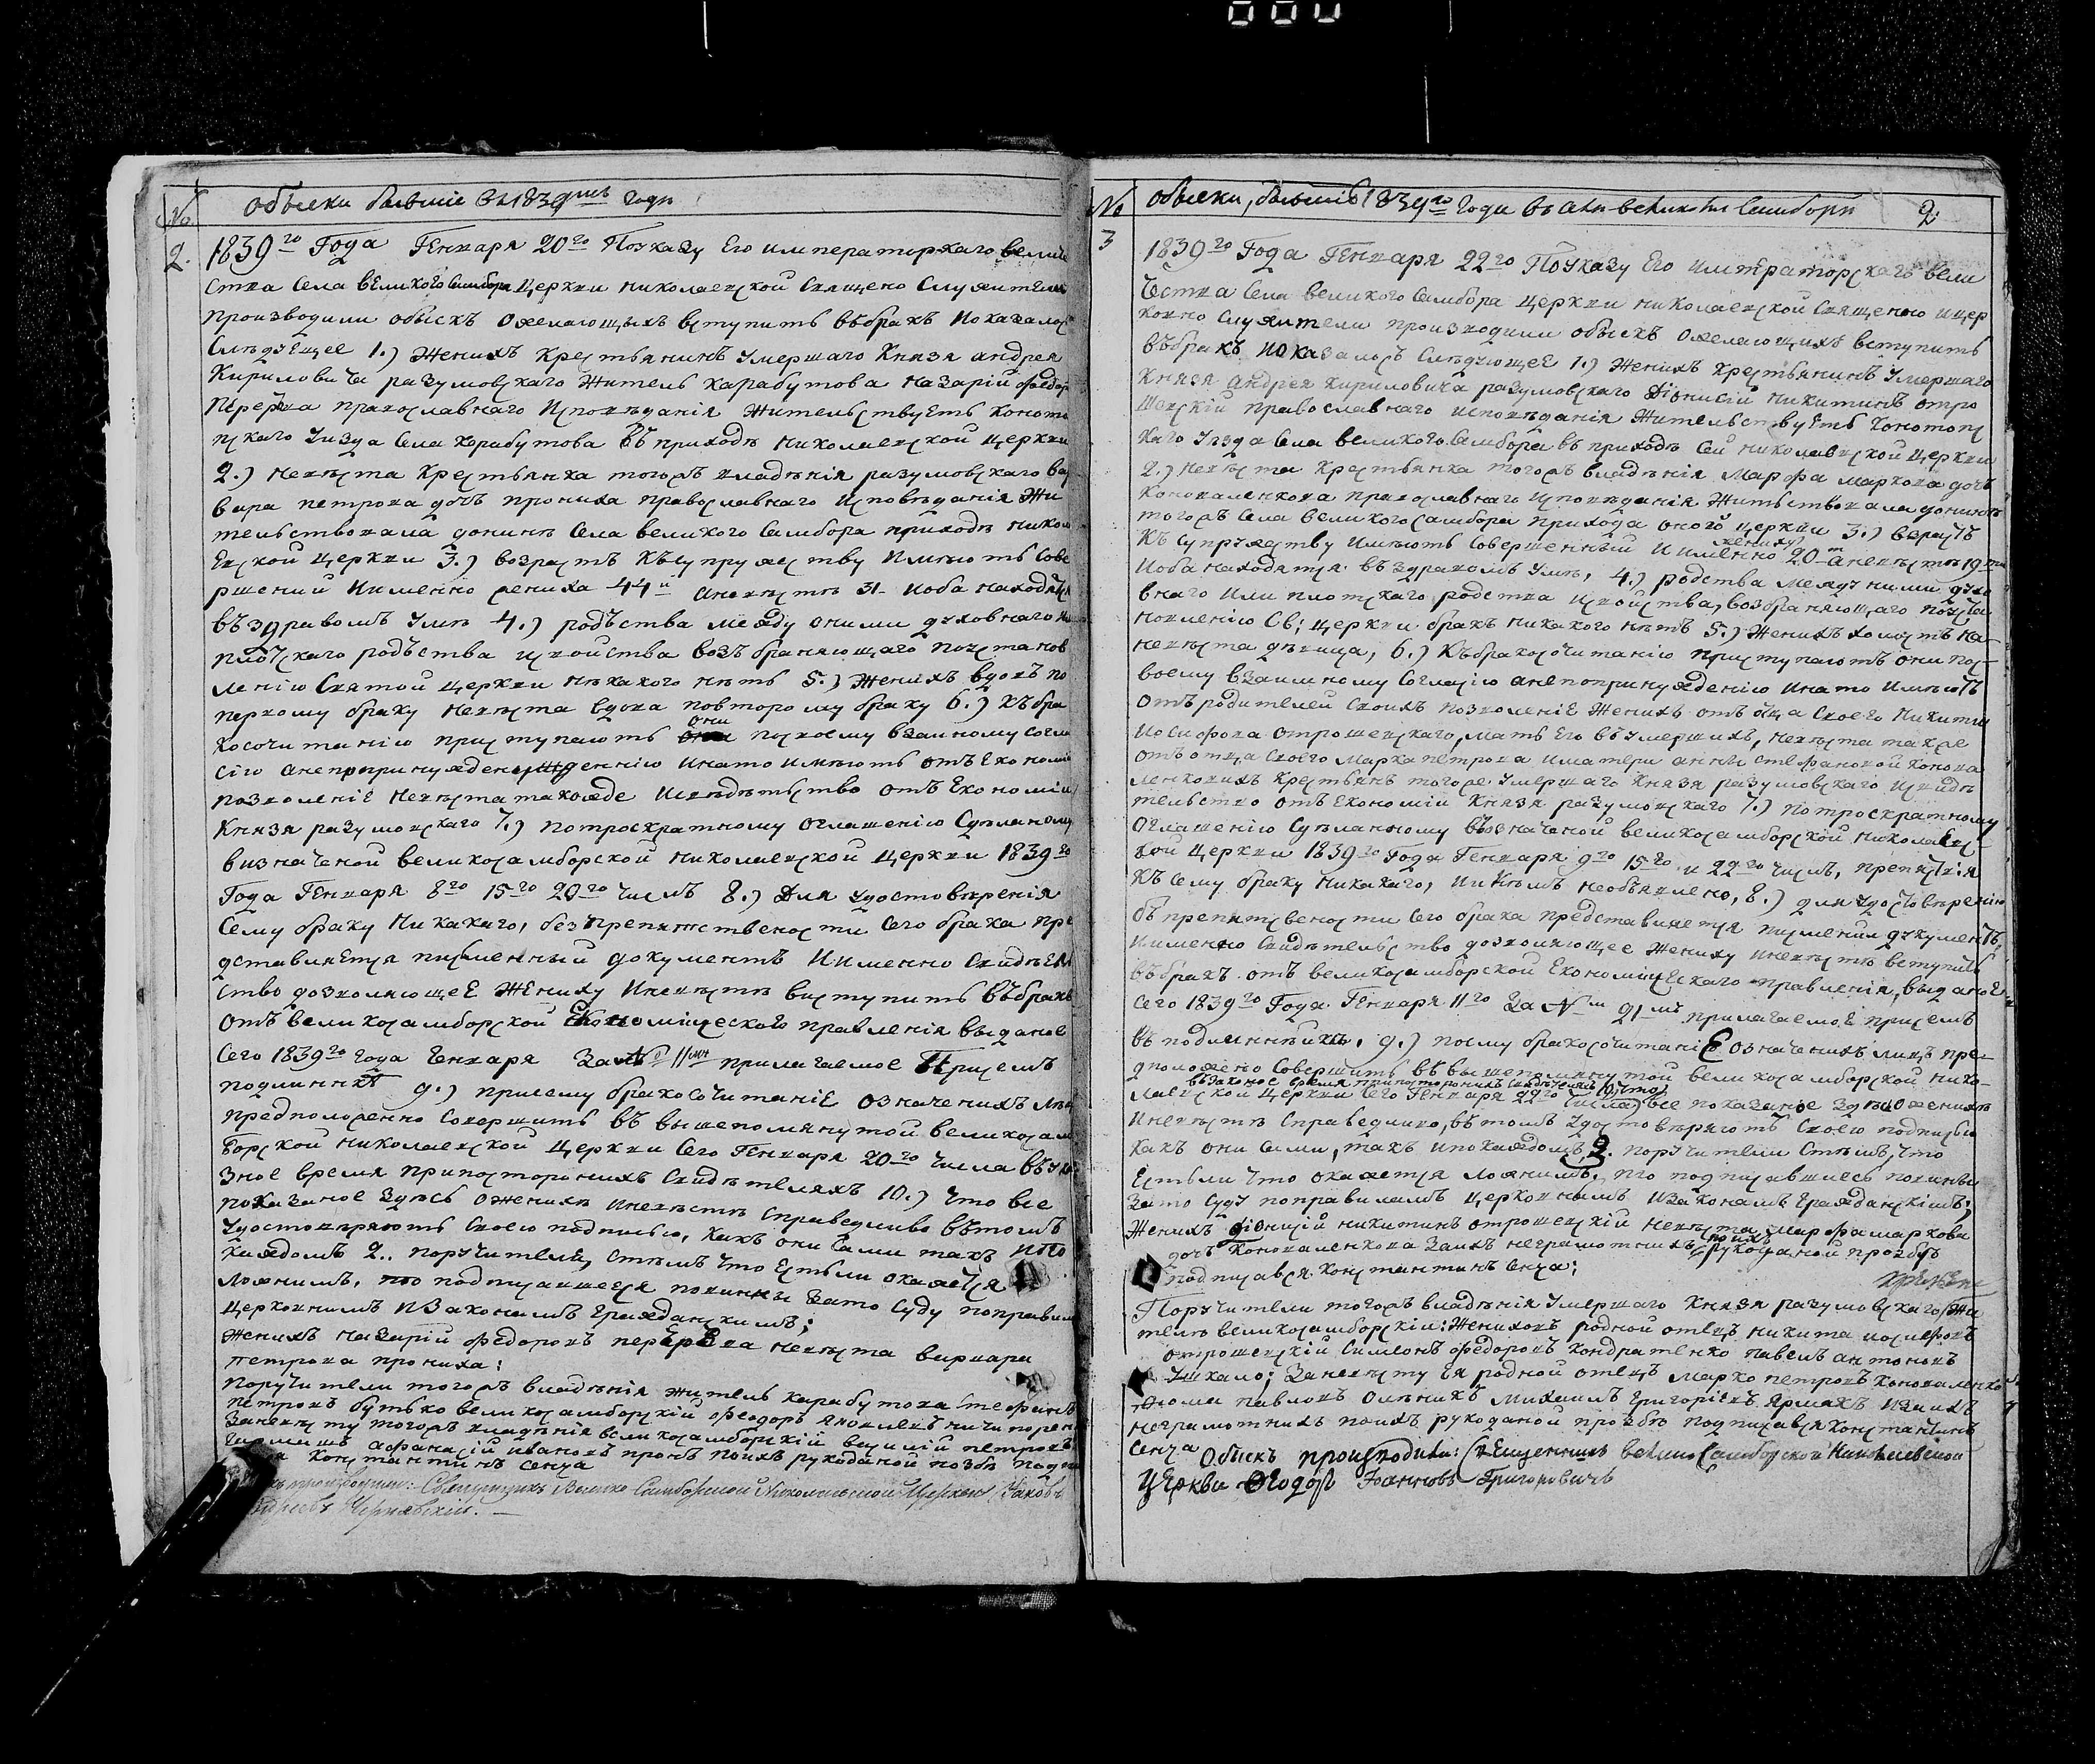 No
обыски бывшіе въ 1839мъ годѣ
2.
1839го Года Генваря 20го По указу Его императорскаго величе
ства Села великого Самбора церкви николаевской Священо Служители
производили обыскъ о желающихъ вступить въ бракъ и оказалось
Слѣдующее 1.) Женихъ Крестьянинъ умершаго Князя андрея
Кириловича разумовскаго житель карабутова назарій федоровъ
православнаго Исповѣданія Жительствуетъ коното
пскаго уизда Села корабутова въ приходѣ николаевской церкви
2.) невѣста Крестьянка тогожъ владѣнія разумовскаго вар
вара петрова дочъ прониха православнаго Исповѣданія Жи
тельствовала донинѣ Села великого Самбора приходѣ никола
евской церкви 3.) возрастъ къ супружеству Имѣютъ Сове
ршений Именно жениха 44и а невѣстѣ 31 и оба находятся
въ здравомъ умѣ 4.) родъства между оними духовного и
плотскаго родъства и свойства возъбраняющаго по установ
ленію Святой церкви нѣкакого нѣтъ 5.) Женихъ вдовъ по
первому браку невѣста вдова по второму браку 6.) къ бра
косочитанію приступаютъ они по своему взаимному согла
сію а не по принужденію и на то имѣютъ отъ Економіи
позволеніе невѣста такожде и свѣдѣтельство отъ Економіи
Князя разумовскаго 7.) по троекратному оглашенію Сдѣланому
в изначеной великосамборской николаевской церкви 1839го
Года Генваря 8го 15го 20го числъ 8.) Для удостовѣренія
Сему браку Никакаго, безпрепятствености Сего брака пре
дставляется писменный документъ Именно Свидѣтель
ство дозволяющее Жениху и невѣстѣ вступить въ бракъ
отъ великосамборской Економического правленія выданое
Сего 1839го года Генваря за № 11мъ прилагаемое При семъ
подлинникѣ 9.) при сему бракосочитаніе означенихъ лицъ
предположенно Совершить въ вышепомянутой великосам
борской николаевской церкви Сего Генваря 20го числа въ ука
зное время при посторонихъ Свидѣтеляхъ 10.) что все
показаное здѣсь о женихѣ и невѣстѣ Справедливо въ томъ
удостовѣряютъ Своею подписью, какъ они сами такъ и по
каждомъ 2. поручители, стѣмъ что естьли окажется
ложнимъ, то подписавшеся повинны за то Суду по правилам
церковнимъ и Законамъ Гражданскимъ;
женихъ назарій федоровъ невѣста варвара
петрова прониха:
поручители тогожъ владѣнія житель карабутова стефанъ
петровъ бутько великосамборскій феодоръ яковлевъ
За невѣсту тогожъ владѣнія великосамборскій василій петровъ
афанасій ивановъ пронь по ихъ рукоданой прозбѣ подпи
константинъ сенча
Священникъ Велико Самборской Николаевской Церкви Іаковъ
Андреевъ Чернявскій.
No
обыски, бывшіе 1839го Года въ селѣ великомъ Самборѣ
2
3
1839го Года Генваря 22го По указу Его императорскаго вели
чества Села великого Самбора церкви николаевской Священно и цер
ковно служители производили обыскъ о желающихъ вступить
въ бракъ и оказалось Слѣдующее 1.) Женихъ Крестьянинъ умершаго
Князя андрея кириловича разумовскаго Діонисій никитинъ отро
шевскій православнаго исповѣданія Жительствуетъ Конотопс
каго уезда Села великого Самбора въ приходѣ Сей николаевской церкви
2.) невѣста Крестьянка тогожъ владѣнія Марфа маркова дочъ
Коноваленкова православнаго Исповѣданія Жительствовала донинѣ
тогожъ Села великого Самбора прихода оной церкви 3.) возрастъ
къ супружеству имѣютъ совершенный и именно жениху 20 а невѣстѣ 19
и оба находятся въ здравомъ умѣ, 4.) родства между ними духо
внаго или плотскаго родства и свойства, возбраняющаго по уста
новленію Св: церкви бракъ никакого нѣтъ 5.) Женихъ холостъ а
невѣста дѣвица, 6.) Къ бракосочитанію приступаютъ они по с
воему взаимному Согласію а не по принуждению и на то имѣютъ
отъ родителей своихъ позволеніе Женихъ отъ отца своего Никиты
Иосифова отрошевскаго, мать его въ умершихъ, невѣста также
отъ отца своего Марка петрова и матери анны стефановой конова
ленковихъ крестьянъ тогоже умершаго Князя разумовскаго и свидѣ
тельство отъ Економіи Князя разумовскаго 7.) по троекратному
оглашенію Сдѣланному въ означеной великосамборской николаевс
кой церкви 1839го Года Генваря 9го 15го и 22го числъ, препятствія
къ сему браку никакаго, и никѣмъ не объявлено, 8.) для удостовѣренія
безпрепятствености Сего брака представляется писменій документъ,
и именно Свидѣтельство дозволяющее жениху и невѣстѣ вступить
въ бракъ отъ великосамборской Економическаго правленія, выданое
Сего 1839го Года Генваря 11го За № 21мъ прилагаемое при семъ
въ подлинникѣ. 9.) по сему бракосочитаніе означенихъ лицъ пре
дположено совершить въ вышепомянутой великосамборской нико
въ законое время при постороннихъ свидѣтеляхъ 10) что
лаевской церкви сего Генваря 22го числа все показаное здѣсь о женихѣ
и невѣстѣ Справедливо, въ томъ удостовѣряютъ своею подписью
какъ они сами, такъ и по каждомъ 2. поручители Стѣмъ, что
естьли что окажется ложнимъ, то подписавшіесь повинны
за то Суду по правиламъ церковнымъ и законамъ гражданскімъ;
Женихъ діонисій никитинъ отрошевскій невѣста марфа маркова
дочъ Коноваленкова за ихъ неграмотнихъ по ихъ рукоданой прозбѣ
подписався константинъ Сенча;
Поручители тогожъ владѣнія умершаго князя разумовскаго Жи
тели великосамборскіи: Жениховъ родной отецъ никита иосифовъ
отрошевскій Симеонъ федоровъ кондратенко павелъ антоновъ
Ушкало; за невѣсту ея родной отецъ марко петровъ коноваленко
фома павловъ Михаилъ григоріевъ ярмакъ и за ихъ
неграмотнихъ по ихъ рукоданой прозбѣ подписався константинъ
Сенча
Обыскъ производили: Священникъ велико Самборской Николаевской
Церкви Феодоръ Іоанновъ Григоровичъ